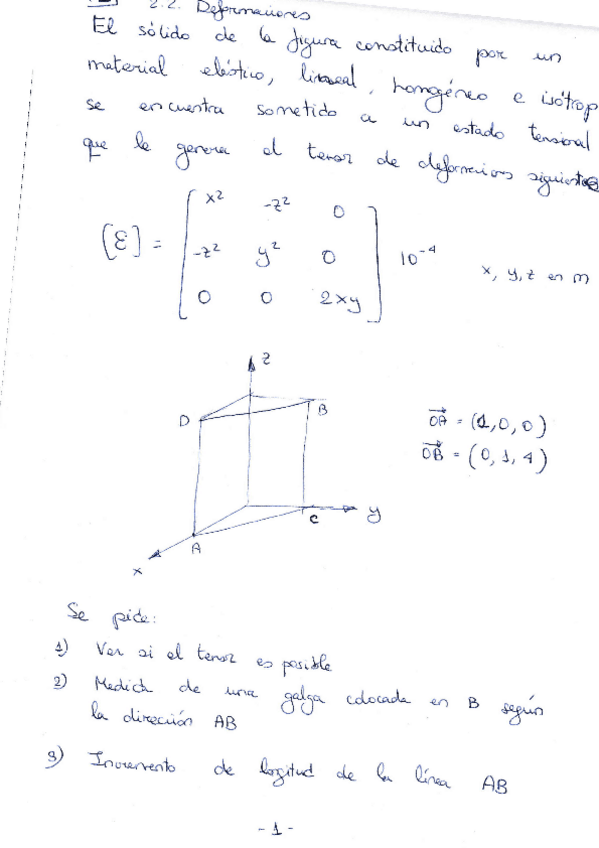 2.2. Deformaciones
El sólido de la figura constituido por un
material elástico, lineal, homogéneo e isótrop
se encuentra sometido a un estado tensional
que le genera el tensor de deformaciones siguiente
[ε] = [ x² -z² 0
-z² y² 0
0 0 2xy ] 10⁻⁴ x, y, z en m
z
D B
OA = (1,0,0)
OB = (0,1,4)
C y
A
x
Se pide:
1) Ver si el tensor es posible
2) Medida de una galga colocada en B según
la dirección AB
3) Incremento de longitud de la línea AB
- 1 -